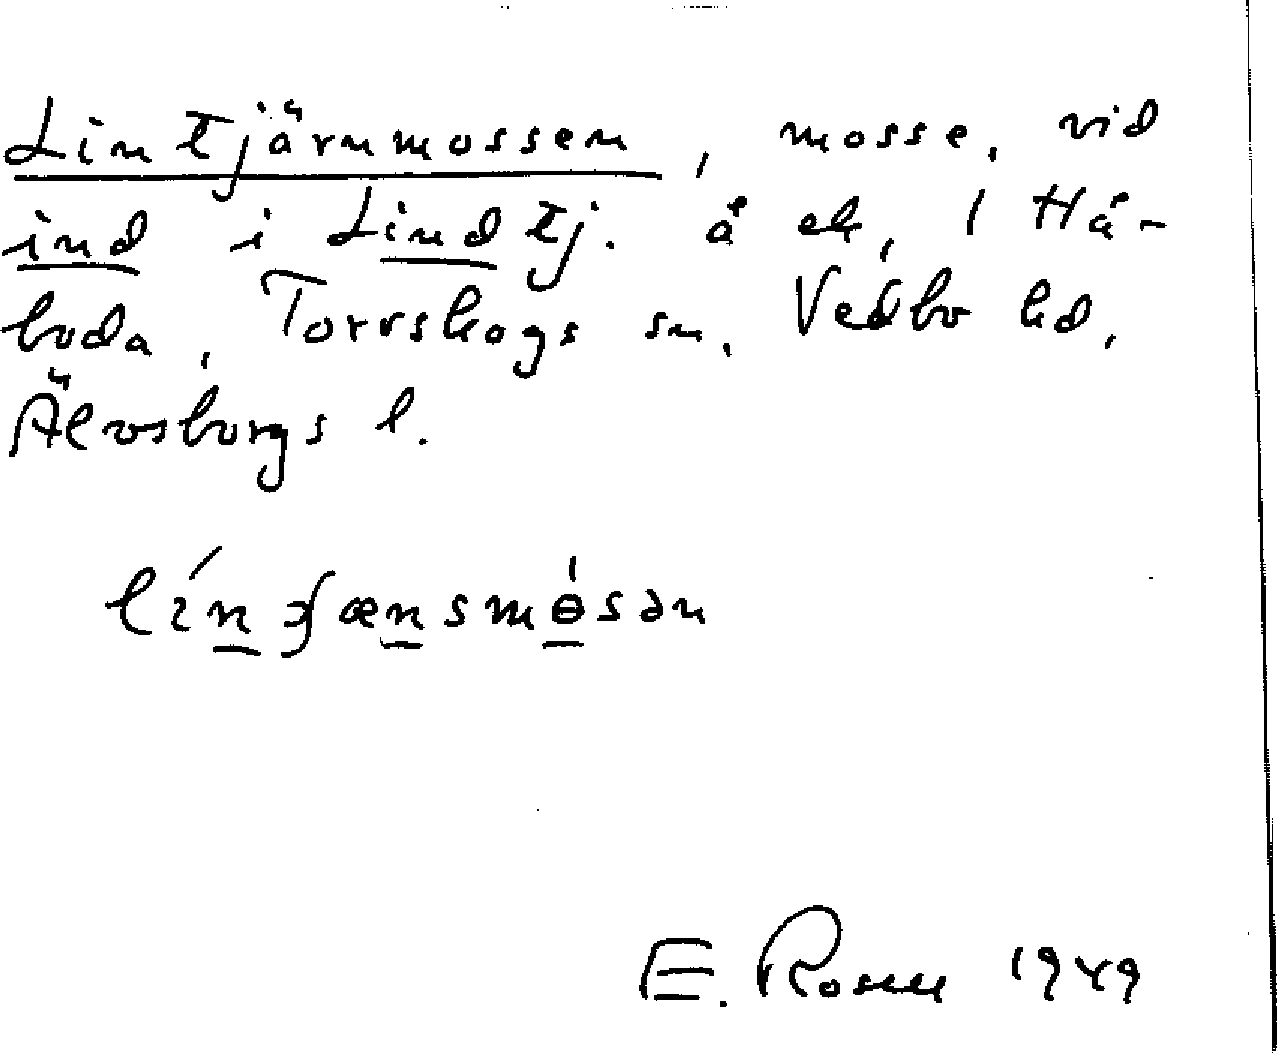 Lintjärnmossen, mosse, vid
ind i Lindtj. å ek, 1 Hå-
boda, Torrskogs sn, Vedbo hd,
Älvsborgs l.
E. Rosen 1949